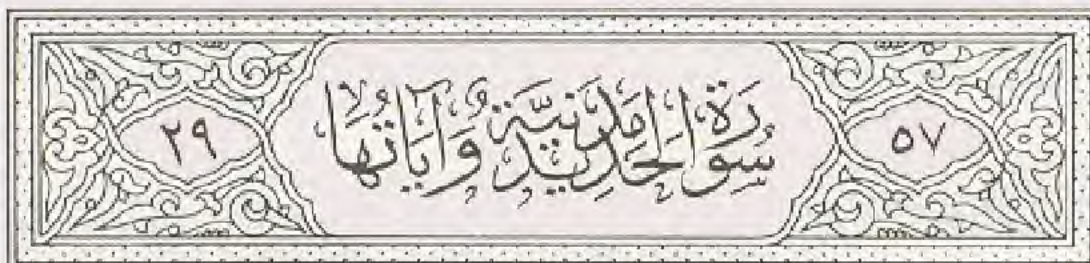 ٥٧
سُورَةُ الحَدِيدِ مَدَنِيَّة وَآيَاتُهَا
٢٩